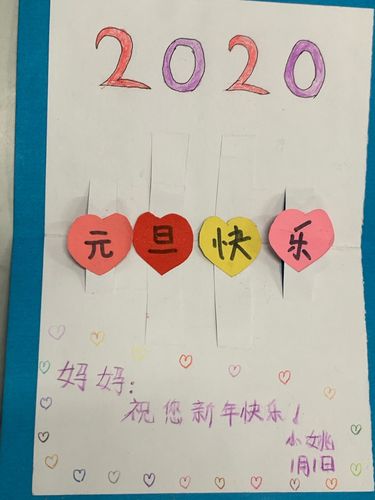 2020
元旦快乐
妈妈:
祝您新年快乐!
小姚
1月1日